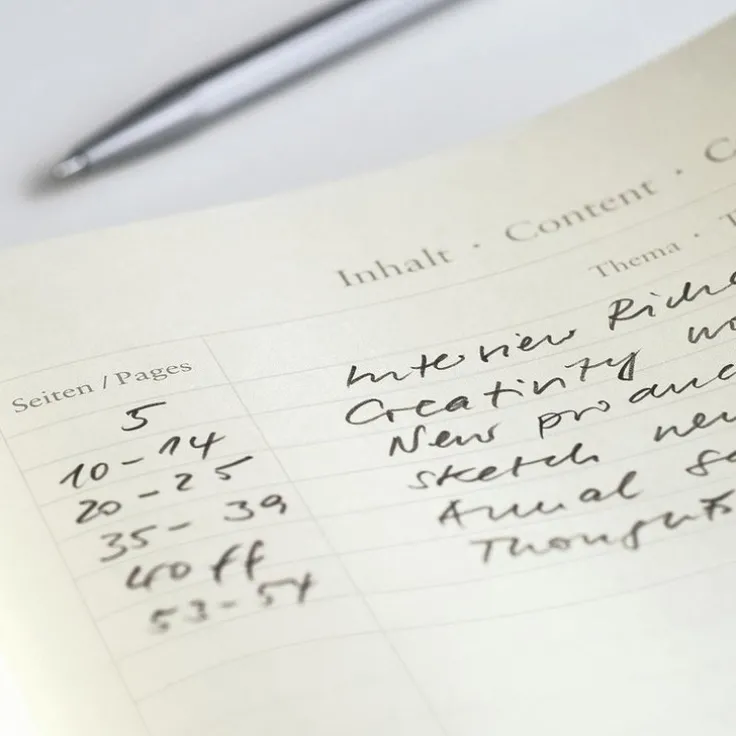 Inhalt · Content ·
Thema ·
Seiten / Pages
5 Interview
10 - 14 Creativity
20 - 25 New
35 - 39 sketch
40 ff Annual
53 - 54 Thoughts